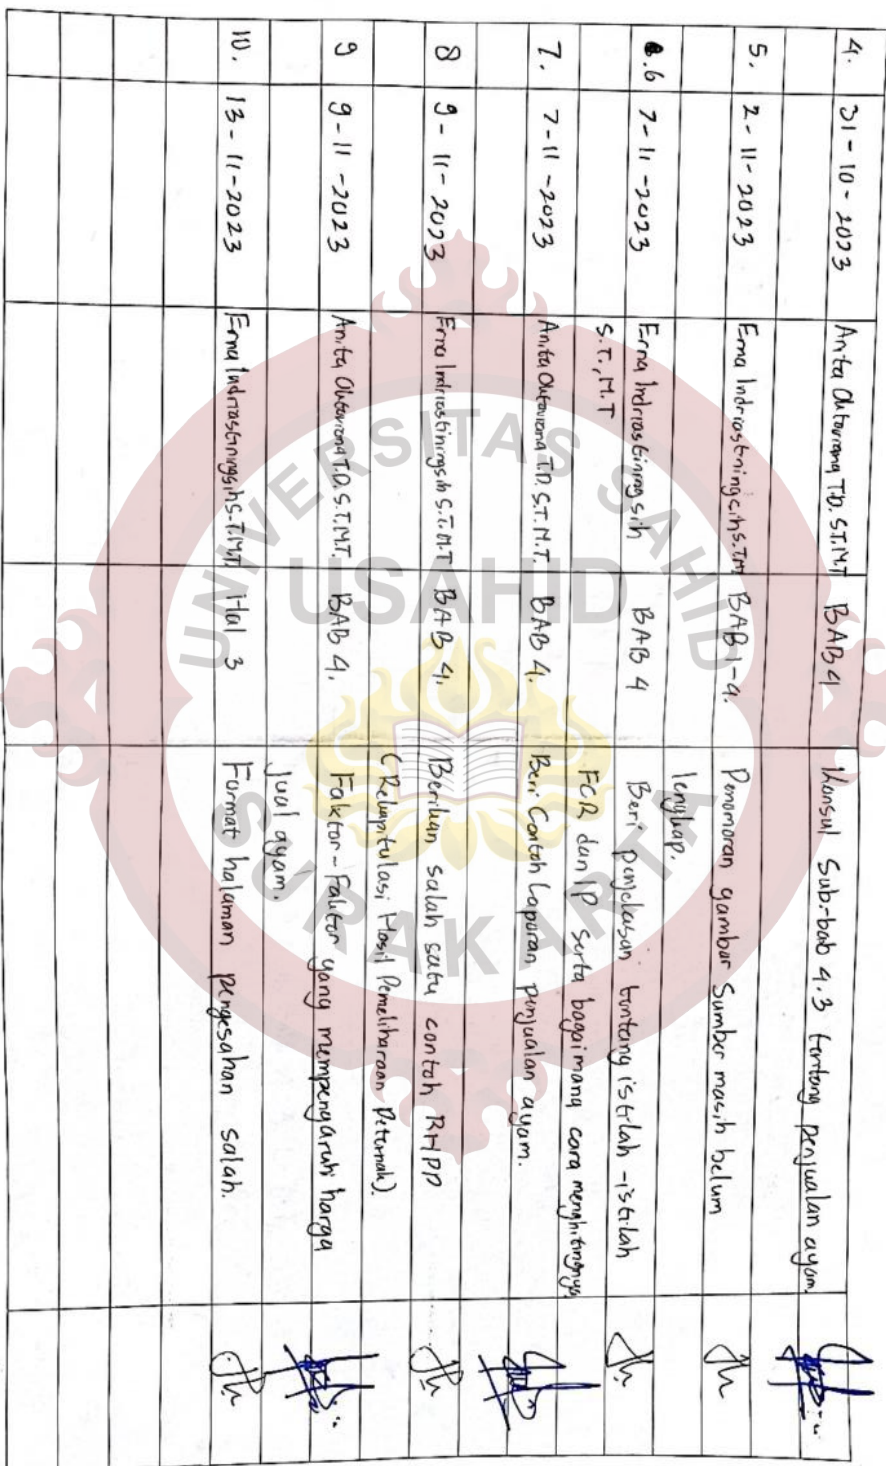 4. 31-10-2023 Anita Oktaviana T.D. S.T.M.T BAB 4 Konsul Sub-bab 4.3 tentang penjualan ayam.
5. 2-11-2023 Erna Indriastiningsih S.T.MT BAB 1-4. Penomoran gambar Sumber masih belum
lengkap.
6 7-11-2023 Erna Indriastiningsih BAB 4 Beri penjelasan tentang istilah-istilah
S.T., M.T FCR dan IP serta bagaimana cara menghitungnya
7. 7-11-2023 Anita Oktaviana T.D. S.T.M.T. BAB 4. Beri Contoh Laporan penjualan ayam.
8 9-11-2023 Erna Indriastiningsih S.T.M.T BAB 4. Berikan salah satu contoh RHPP
(Rekapitulasi Hasil Pemeliharaan Peternak).
9 9-11-2023 Anita Oktaviana T.D. S.T.M.T. BAB 4. Faktor-Faktor yang mempengaruhi harga
jual ayam.
10. 13-11-2023 Erna Indriastiningsih S.T.M.T. Hal 3 Format halaman pengesahan salah.
UNIVERSITAS SAHID
USAHID
SURAKARTA